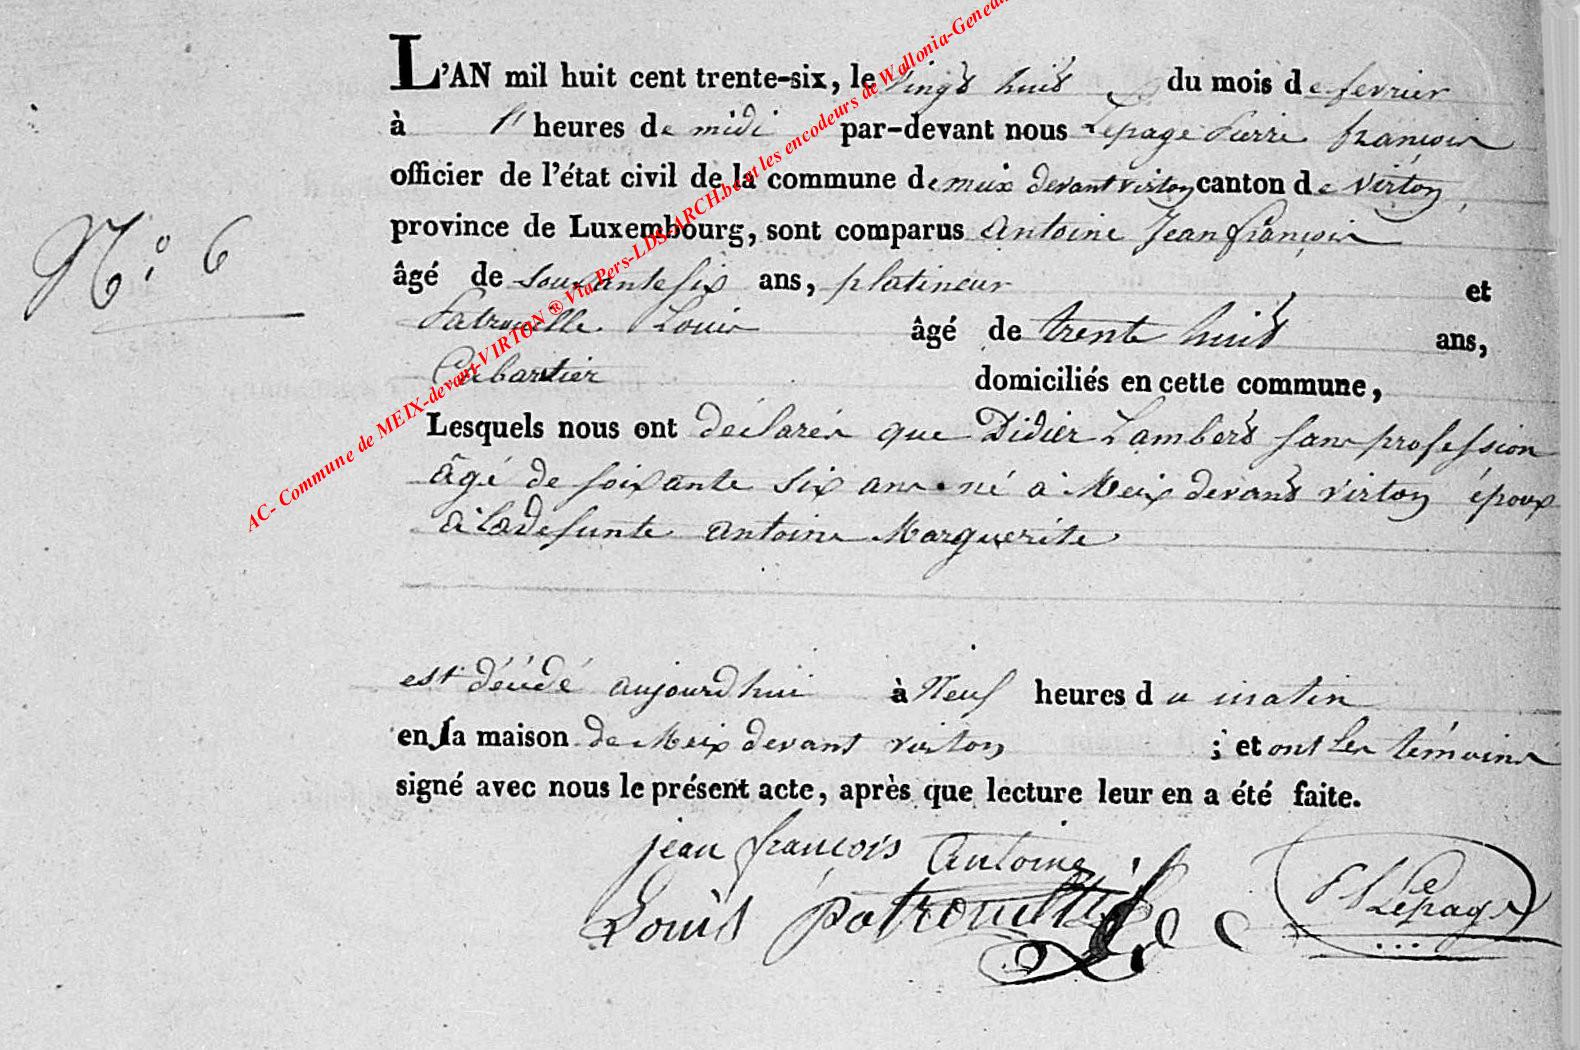 L'AN mil huit cent trente-six, le vingt huit du mois de fevrier
à heures de midi par-devant nous Lepage Pierre françois
officier de l'état civil de la commune de meix devant virton canton de virton,
province de Luxembourg, sont comparus Antoine Jean françois
N.° 6
âgé de souxante six ans, platineur et
Patrouille Louis âgé de trente huit ans,
Cabartier domiciliés en cette commune,
Lesquels nous ont déclarés que Didier Lambert sans profession
âgé de soixante six ans né à Meix devant virton époux
à la defunte antoine Marguerite
est décédé aujourd hui à Neuf heures du matin
en sa maison de Meix devant virton ; et ont les témoins
signé avec nous le présent acte, après que lecture leur en a été faite.
jean francois Antoine
Louis patrouille
P f Lepage
AC- Commune de MEIX-devant-VIRTON ® Via Pers-LDS-ARCH.be et les encodeurs de Wallonia-Genea